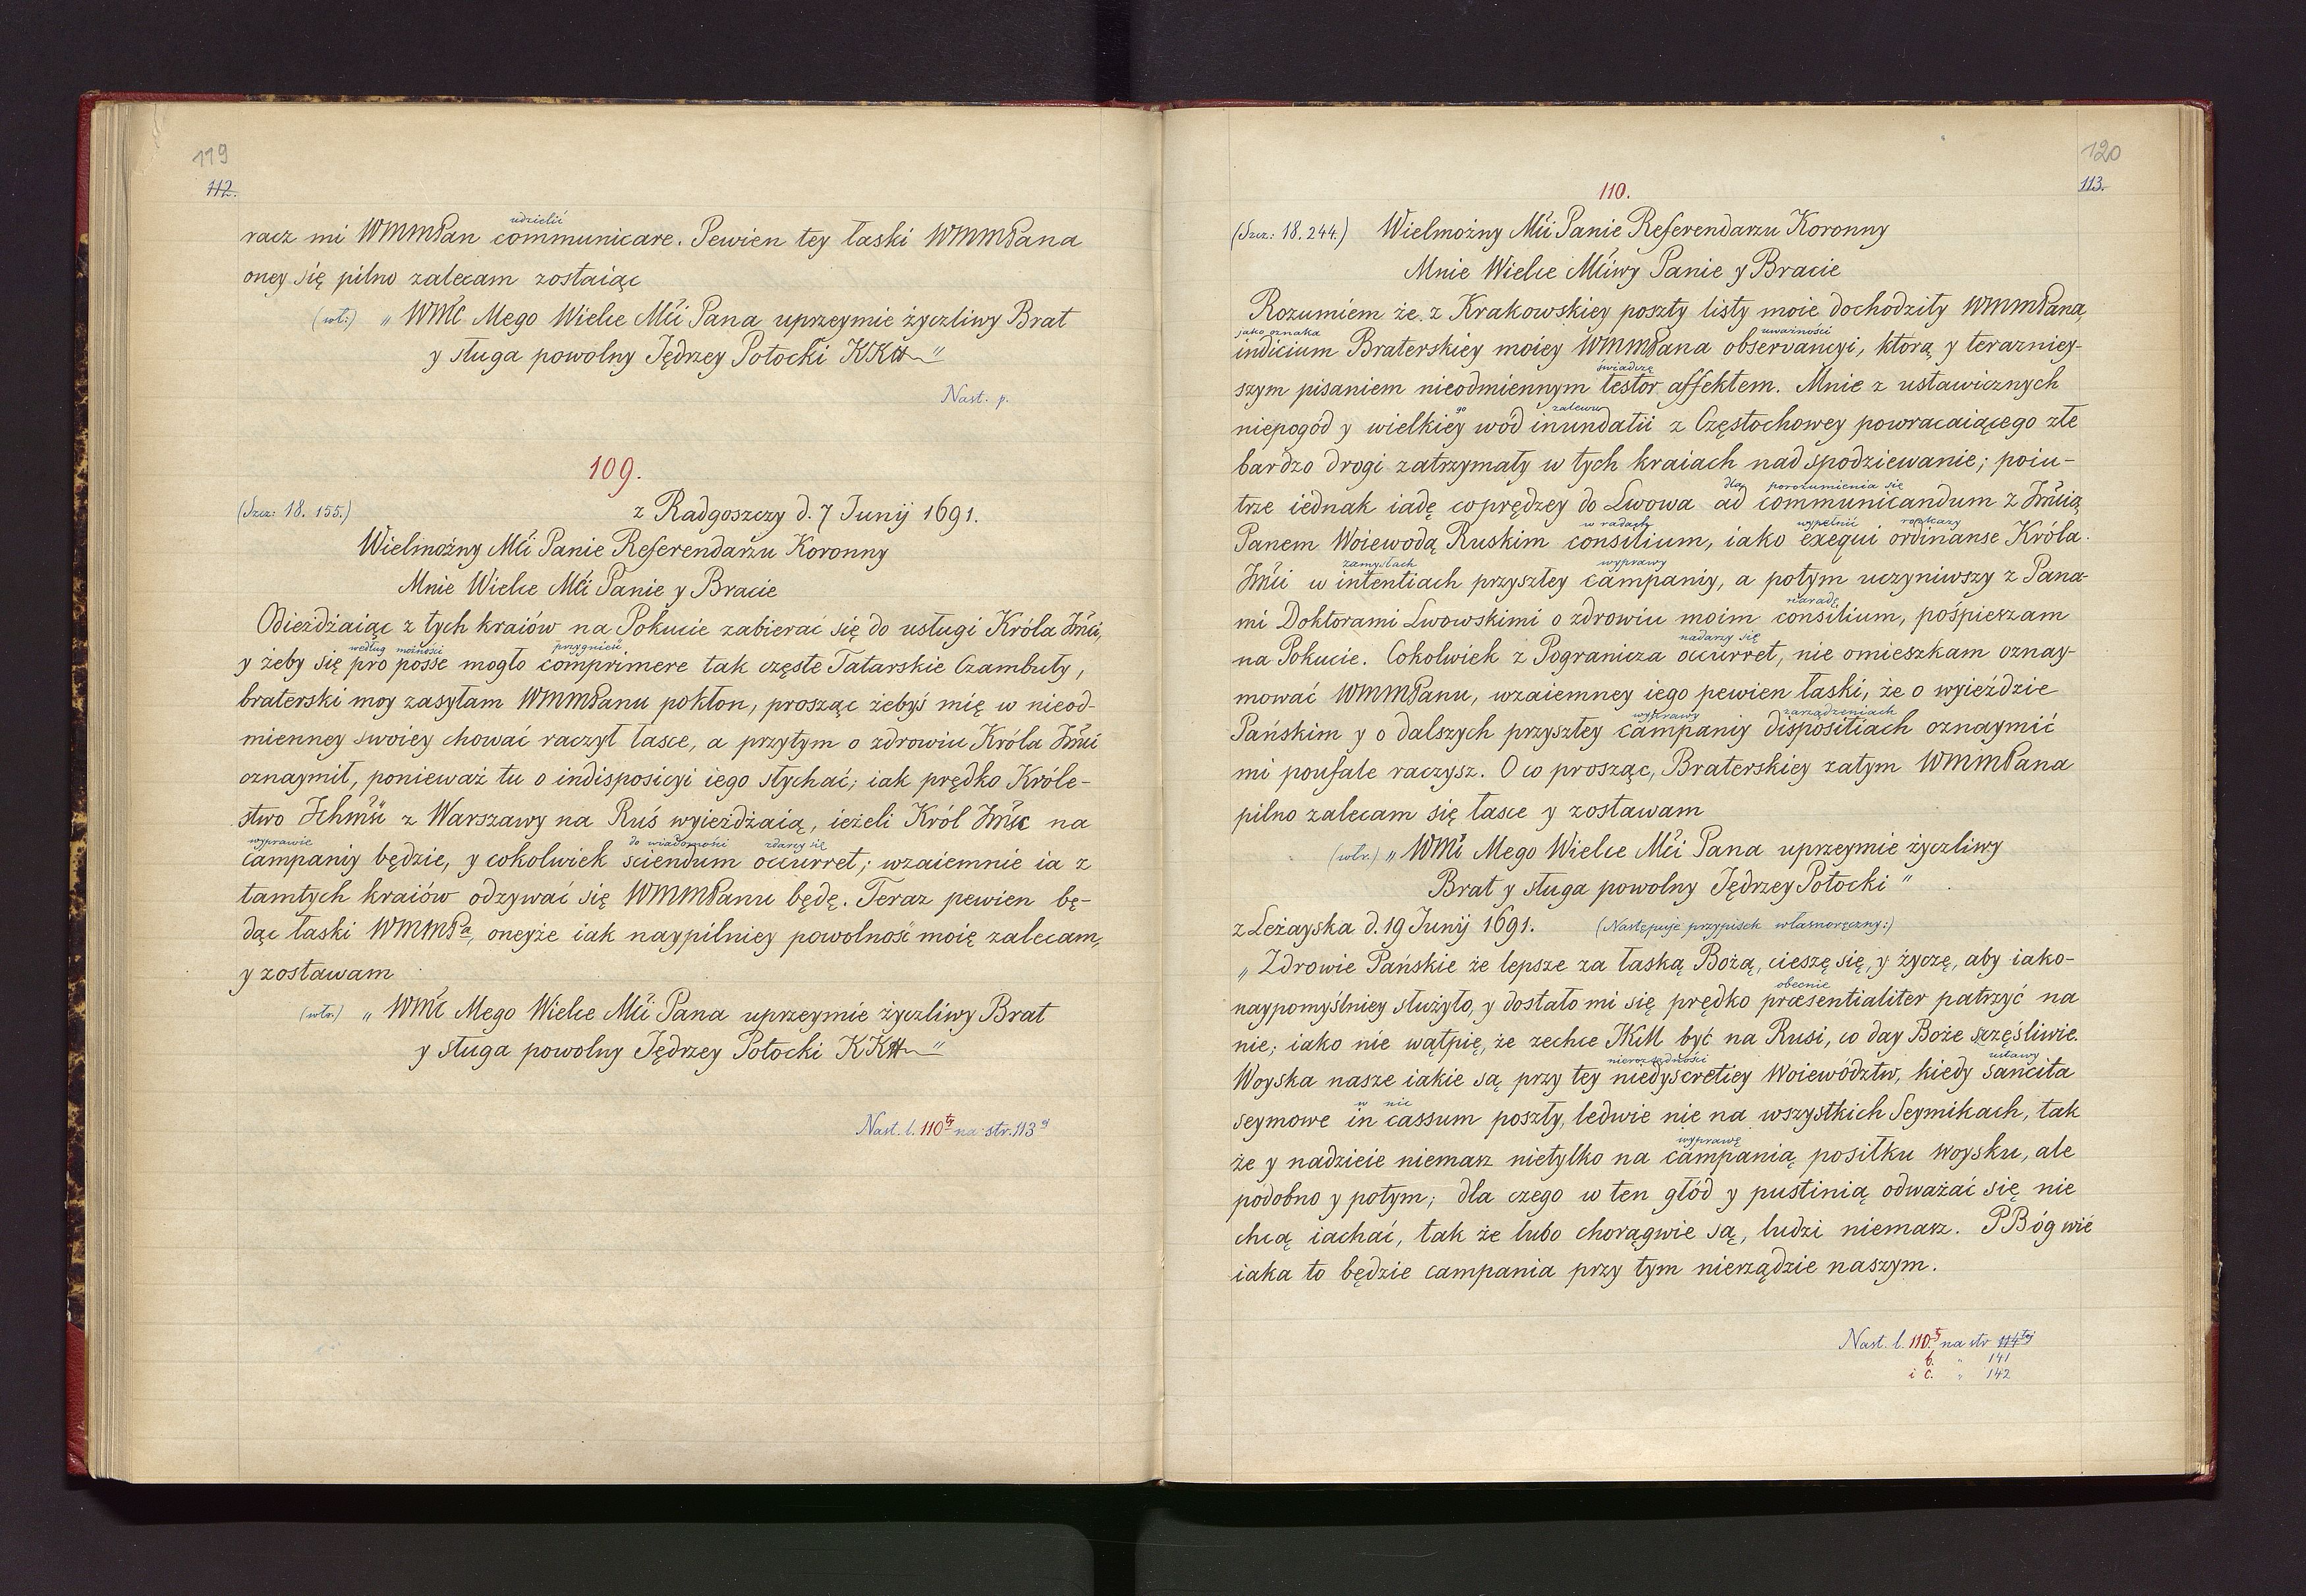 119
112.
udzielić
racz mi WMMPan communicare. Pewien tey łaski WMMPana
oney się pilno zalecam zostaiąc
(wł:) „ WMć Mego Wielce Mći Pana uprzeymie życzliwy Brat
y sługa powolny Jędrzey Potocki KKH "
Nast. p.
109.
(Szcz: 18. 155.) z Radgoszczy d. 7 Junij 1691.
Wielmożny Mći Panie Referendarzu Koronny
Mnie Wielce Mći Panie y Bracie
Odieżdżaiąc z tych kraiów na Pokucie zabierać się do usługi Króla Jmći,
według możności przygnieść
y żeby się pro posse mogło comprimere tak częste Tatarskie Czambuły,
braterski moy zasyłam WMMPanu pokłon, prosząc żebyś mię w nieod-
mienney swoiey chować raczył łasce, a przytym o zdrowiu Króla Jmći
oznaymił, ponieważ tu o indisposicyi iego słychać; iak prędko Króle-
stwo Ichmći z Warszawy na Ruś wyieżdżaią, ieżeli Król Jmć na
wyprawie do wiadomości zdarzy się
campaniy będzie, y cokolwiek sciendum occurret; wzaiemnie ia z
tamtych kraiów odzywać się WMMPanu będę. Teraz pewien bę-
dąc łaski WMMPa, oneyże iak naypilniey powolność moię zalecam,
y zostawam
(włr.) „ WMć Mego Wielce Mći Pana uprzeymie życzliwy Brat
y sługa powolny Jędrzey Potocki KKH "
Nast. l. 110ty na str. 113ej
120
113.
110.
(Szcz: 18. 244.) Wielmożny Mći Panie Referendarzu Koronny
Mnie Wielce Mćiwy Panie y Bracie
Rozumiem że z Krakowskiey poszty listy moie dochodziły WMMPana,
jako oznaka uważności
indicium Braterskiey moiey WMMPana observancyi, ktorą y terazniey-
świadczę
szym pisaniem nieodmiennym testor affektem. Mnie z ustawicznych
go zalewu
niepogód y wielkiey wód inundatii z Częstochowey powracaiącego złe
bardzo drogi zatrzymały w tych kraiach nad spodziewanie; poiu-
dla porozumienia się
trze iednak iadę coprędzey do Lwowa ad communicandum z Jmćią
w radach wypełnić rozkazy
Panem Woiewodą Ruskim consilium, iako exequi ordinanse Króla
zamysłach wyprawy
Jmći w intentiach przyszłey campaniy, a potym uczyniwszy z Pana-
naradę
mi Doktorami Lwowskimi o zdrowiu moim consilium, pośpieszam
nadarzy się
na Pokucie. Cokolwiek z Pogranicza occurret, nie omieszkam oznay-
mować WMMPanu, wzaiemney iego pewien łaski, że o wyieździe
wyprawy zarządzeniach
Pańskim y o dalszych przyszłey campaniy dispositiach oznaymić
mi poufale raczysz. O co prosząc, Braterskiey zatym WMMPana
pilno zalecam się łasce y zostawam
(włr.) „ WMć Mego Wielce Mći Pana uprzeymie życzliwy
Brat y sługa powolny Jędrzey Potocki "
z Leżayska d. 19 Junij 1691. (Następuje przypisek własnoręczny:)
„ Zdrowie Pańskie że lepsze za łaską Bożą, cieszę się, y życzę, aby iako-
obecnie
naypomyślniey służyło, y dostało mi się prędko præsentialiter patrzyć na
nie; iako nie wątpię, że zechce JKM być na Rusi, co day Boże szczęśliwie.
nierozsądności ustawy
Woyska nasze iakie są przy tey niedyscretiey Woiewództw, kiedy sancita
w nic
seymowe in cassum poszły, ledwie nie na wszystkich Seymikach, tak
wyprawę
że y nadzieie niemasz nietylko na campanią posiłku woysku, ale
podobno y potym; dla czego w ten głód y pustinią odważać się nie
chcą iachać, tak że lubo chorągwie są, ludzi niemasz. PBóg wie
iaka to będzie campania przy tym nierządzie naszym.
Nast. l. 110.ty na str 114tej
b. " 141
i c. " 142